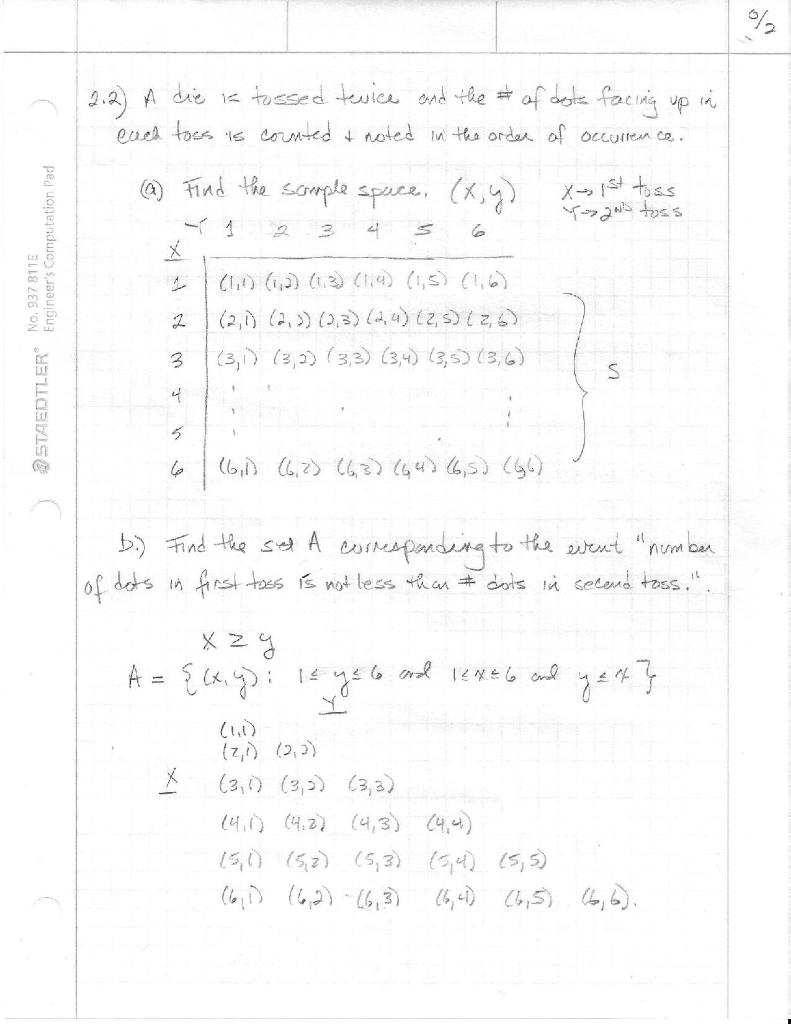 0/2
2.2) A die is tossed twice and the # of dots facing up in
each toss is counted & noted in the order of occurrence.
(a) Find the sample space. (x,y) X→ 1st toss
Y→ 2ND toss
Y 1 2 3 4 5 6
X
1 (1,1) (1,2) (1,3) (1,4) (1,5) (1,6)
2 (2,1) (2,2) (2,3) (2,4) (2,5) (2,6)
3 (3,1) (3,2) (3,3) (3,4) (3,5) (3,6)
S
4
5
6 (6,1) (6,2) (6,3) (6,4) (6,5) (6,6)
b.) Find the set A corresponding to the event "number
of dots in first toss is not less than # dots in second toss.".
x ≥ y
A = {(x,y): 1≤ y≤6 and 1≤x≤6 and y≤x}
Y
(1,1)
(2,1) (2,2)
X (3,1) (3,2) (3,3)
(4,1) (4,2) (4,3) (4,4)
(5,1) (5,2) (5,3) (5,4) (5,5)
(6,1) (6,2) (6,3) (6,4) (6,5) (6,6).
STAEDTLER® No. 937 811E
Engineer's Computation Pad